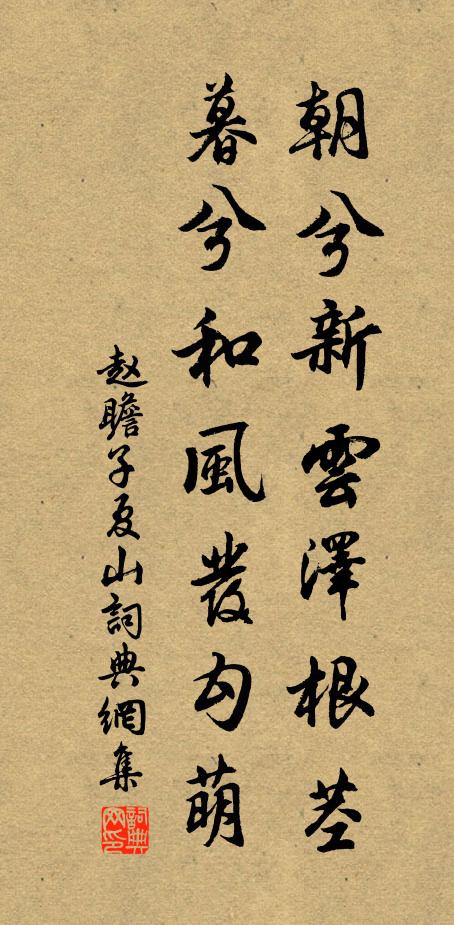 朝兮新雲澤根莖
暮兮和風發勾萌
趙瞻子夏山詞典網集
詞典網印